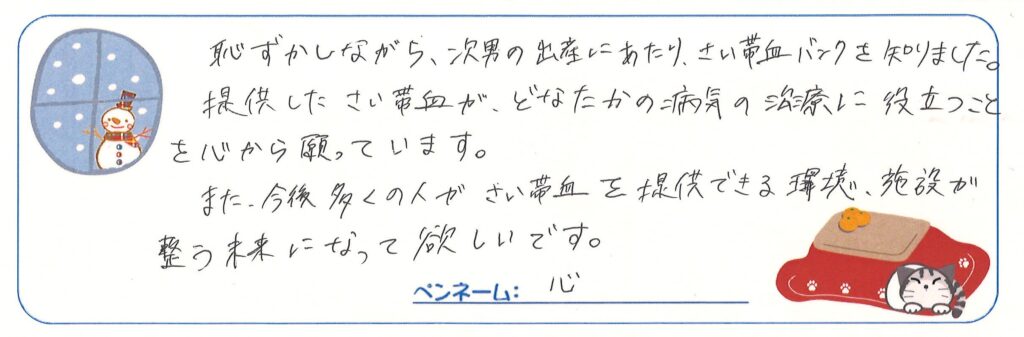 恥ずかしながら、次男の出産にあたり、さい帯血バンクを知りました。
提供したさい帯血が、どなたかの病気の治療に役立つこと
を心から願っています。
また、今後多くの人がさい帯血を提供できる環境、施設が
整う未来になって欲しいです。
ペンネーム: 心